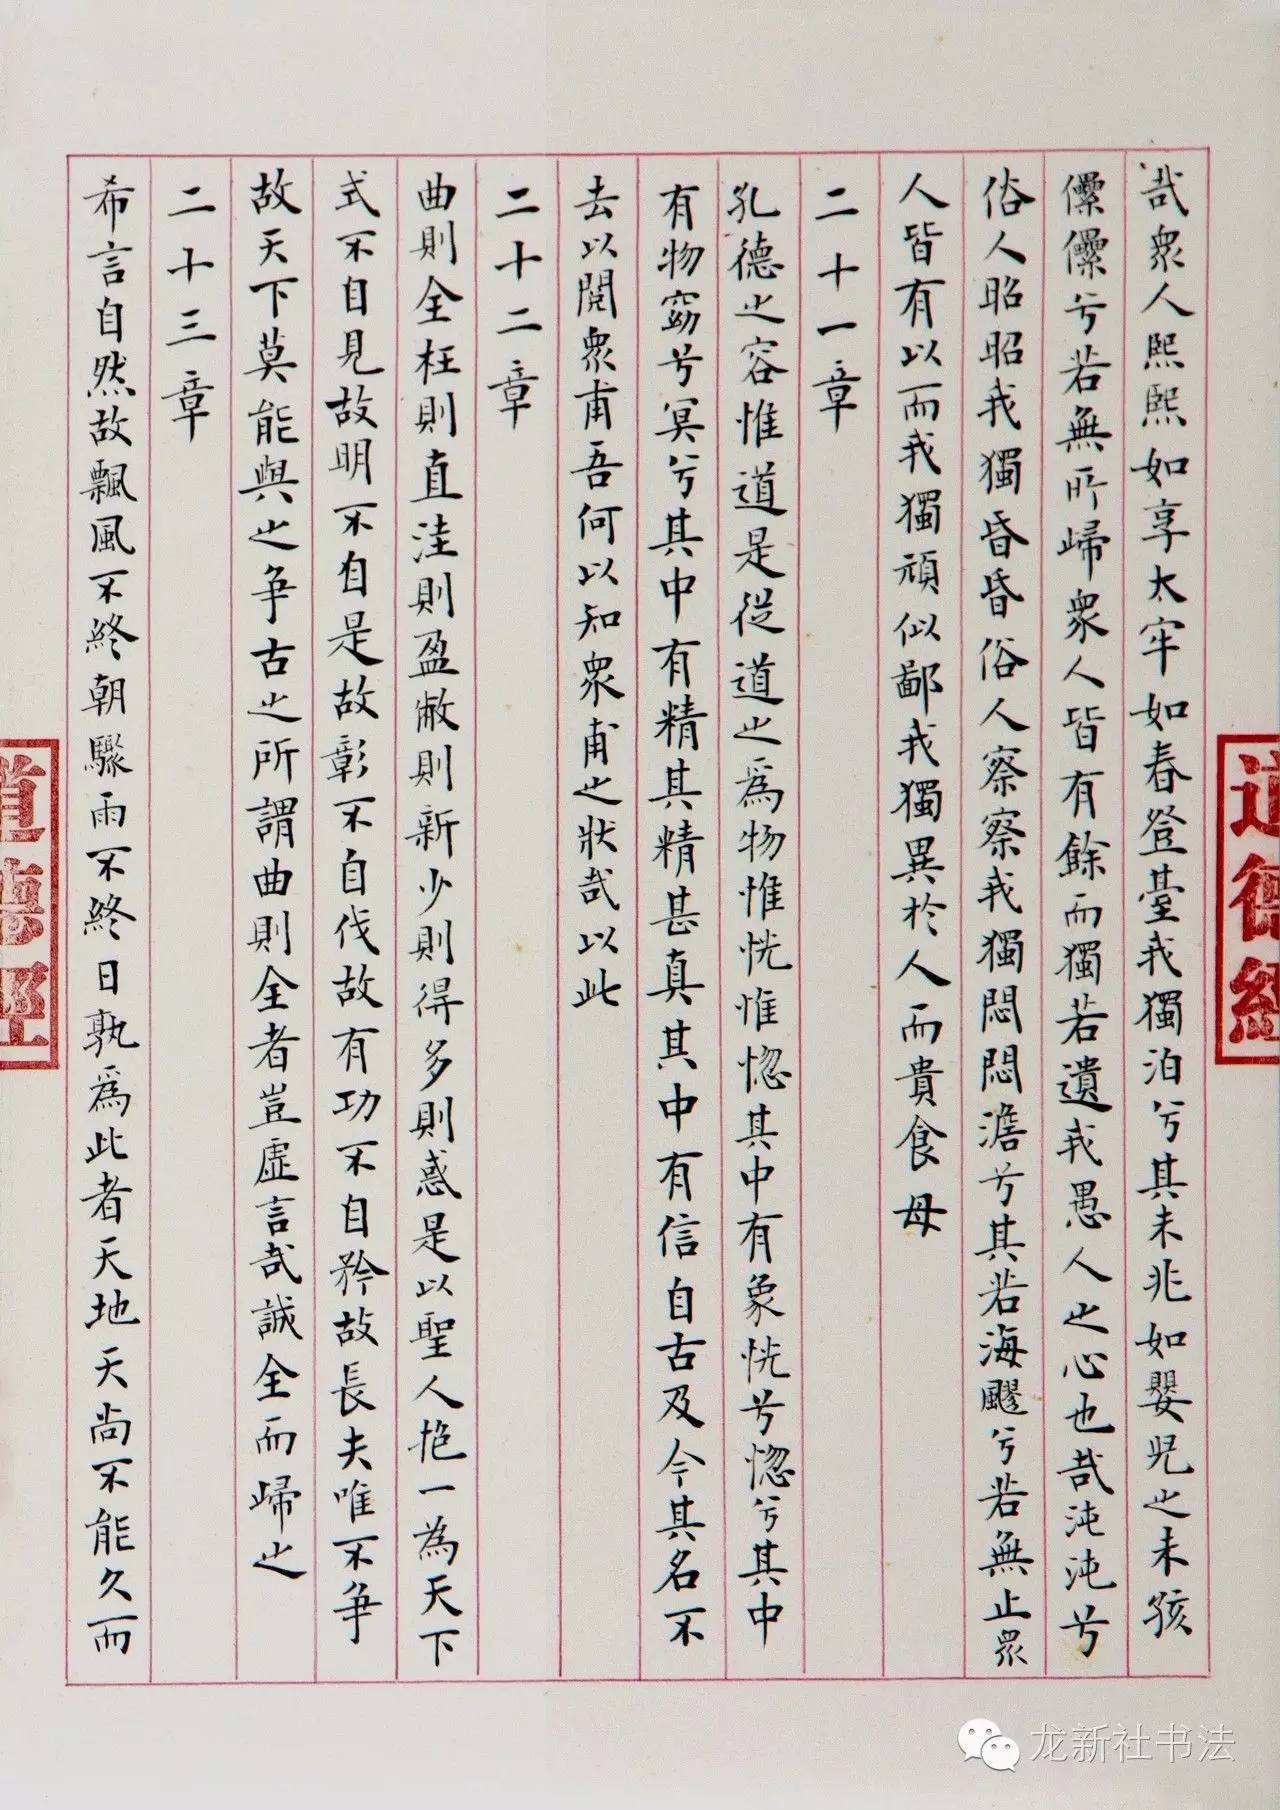 哉衆人熙熙如享太牢如春登臺我獨泊兮其未兆如嬰兒之未孩
儽儽兮若無所歸衆人皆有餘而獨若遺我愚人之心也哉沌沌兮
俗人昭昭我獨昏昏俗人察察我獨悶悶澹兮其若海飂兮若無止眾
人皆有以而我獨頑似鄙我獨異於人而貴食母
二十一章
孔德之容惟道是從道之爲物惟恍惟惚其中有象恍兮惚兮其中
有物窈兮冥兮其中有精其精甚真其中有信自古及今其名不
去以閱衆甫吾何以知衆甫之狀哉以此
二十二章
曲則全枉則直洼則盈敝則新少則得多則惑是以聖人抱一為天下
式不自見故明不自是故彰不自伐故有功不自矜故長夫唯不爭
故天下莫能與之爭古之所謂曲則全者豈虛言哉誠全而歸之
二十三章
希言自然故飄風不終朝驟雨不終日孰爲此者天地天尚不能久而
道德經
道德經
龙新社书法